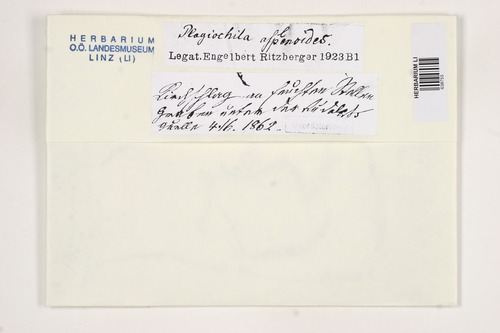 HERBARIUM
O.Ö. LANDESMUSEUM
LINZ (LI)
Plagiochila asplenoides.
Legat. Engelbert Ritzberger 1923 B1
Kirchschlag an feuchten Stellen
Graben unter der
Quelle 4/6. 1862.
HERBARIUM LI